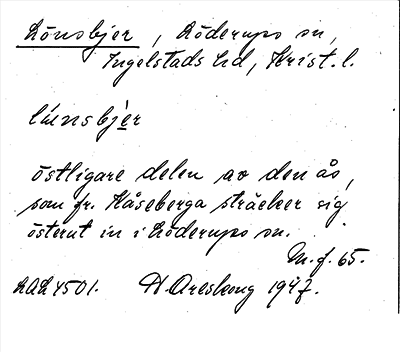 Lönsbjer, Löderups sn,
Ingelstads hd, Krist. l.
lúnsbjèr
östligare delen av den ås,
som fr. Kåseberga sträcker sig
österut in i Löderups sn.
M. f. 65.
LAL 4501. H Areskoug 1947.